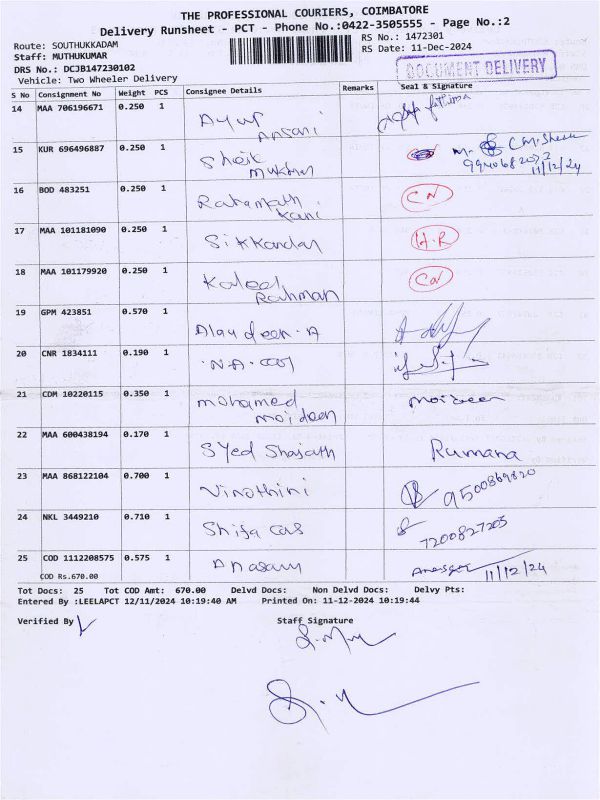 THE PROFESSIONAL COURIERS, COIMBATORE
Delivery Runsheet - PCT - Phone No.:0422-3505555 - Page No.:2
Route: SOUTHUKKADAM RS No.: 1472301
Staff: MUTHUKUMAR RS Date: 11-Dec-2024
DRS No.: DCJB147230102
Vehicle: Two Wheeler Delivery
DOCUMENT DELIVERY
S No Consignment No Weight PCS Consignee Details Remarks Seal & Signature
14 MAA 706196671 0.250 1 Ayup
Ansari
15 KUR 696496887 0.250 1 Sheik
9940682072
11/12/24
16 BOD 483251 0.250 1 Rahamath CN
Kani
17 MAA 101181090 0.250 1 Sikkandar H.R
18 MAA 101179920 0.250 1 Kaleel CN
Rahman
19 GPM 423851 0.570 1 Alaudeen.A
20 CNR 1834111 0.190 1 N.A.
21 CDM 10220115 0.350 1 mohamed moideen
moideen
22 MAA 600438194 0.170 1 Syed Shajath Rumana
23 MAA 868122104 0.700 1 Vinothini 9500869820
24 NKL 3449210 0.710 1 Shifa 7200827205
25 COD 1112208575 0.575 1
COD Rs.670.00 11/12/24
Tot Docs: 25 Tot COD Amt: 670.00 Delvd Docs: Non Delvd Docs: Delvy Pts:
Entered By :LEELAPCT 12/11/2024 10:19:40 AM Printed On: 11-12-2024 10:19:44
Verified By Staff Signature